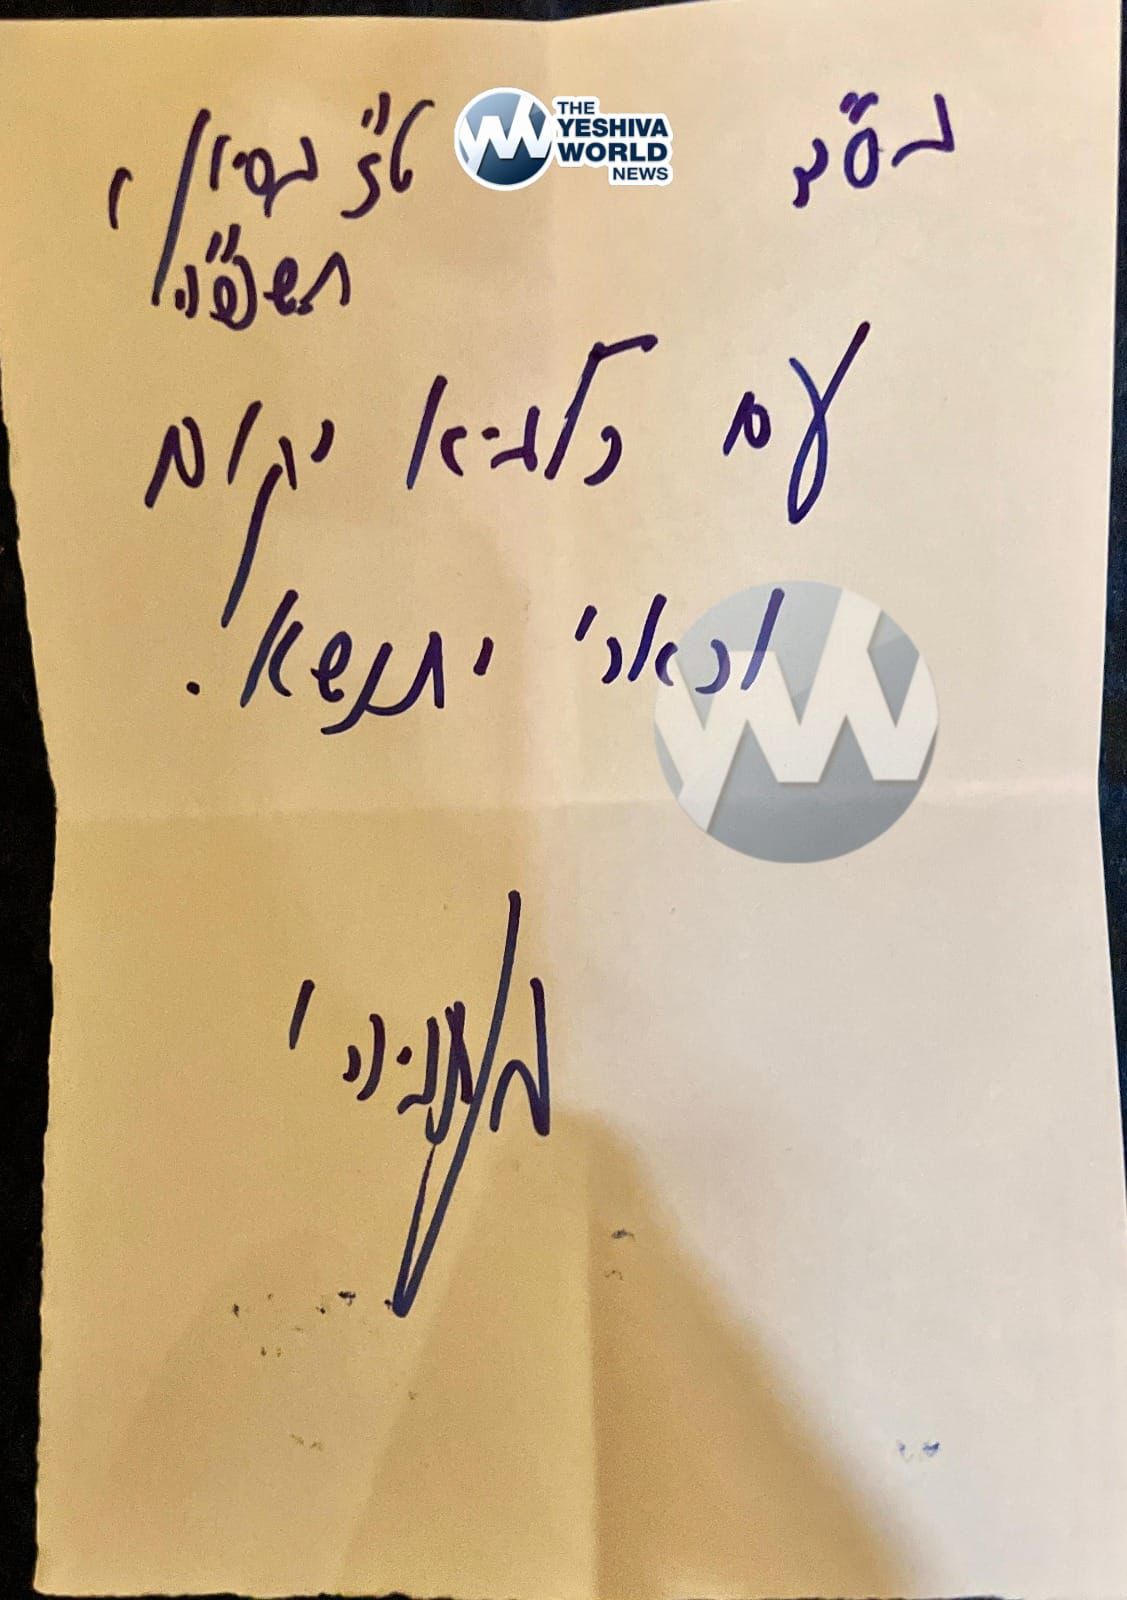 בס"ד
THE
YESHIVA
WORLD
NEWS
ט"ז בסיון,
תשפ"ה
עם כלביא יקום
וכארי יתנשא.